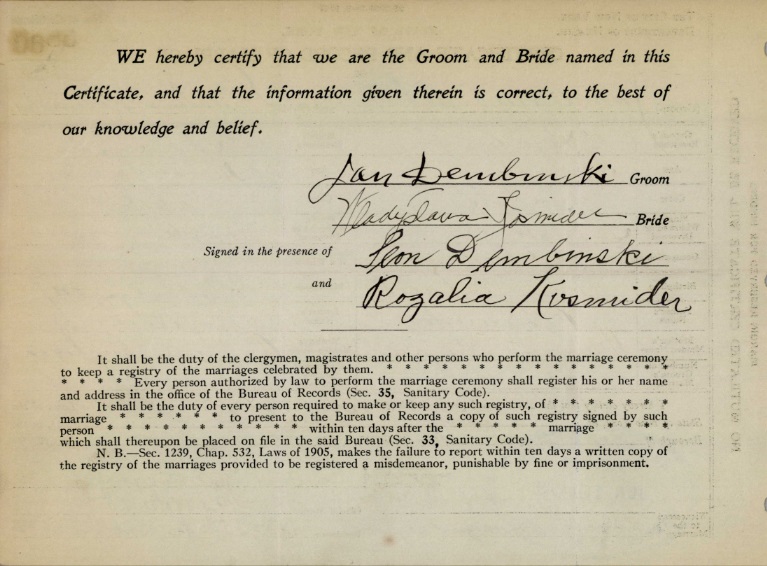 WE hereby certify that we are the Groom and Bride named in this
Certificate, and that the information given therein is correct, to the best of
our knowledge and belief.
Jan Dembinski Groom
Wladyslawa Bride
Signed in the presence of Leon Dembinski
and Rozalia Kosmider
It shall be the duty of the clergymen, magistrates and other persons who perform the marriage ceremony
to keep a registry of the marriages celebrated by them. * * * * * * * * * * * * * *
* * * * Every person authorized by law to perform the marriage ceremony shall register his or her name
and address in the office of the Bureau of Records (Sec. 35, Sanitary Code).
It shall be the duty of every person required to make or keep any such registry, of * * * * *
marriage * * * * * * to present to the Bureau of Records a copy of such registry signed by such
person * * * * * * * * * * within ten days after the * * * * * marriage * * * *
which shall thereupon be placed on file in the said Bureau (Sec. 33, Sanitary Code).
N. B.—Sec. 1239, Chap. 532, Laws of 1905, makes the failure to report within ten days a written copy of
the registry of the marriages provided to be registered a misdemeanor, punishable by fine or imprisonment.